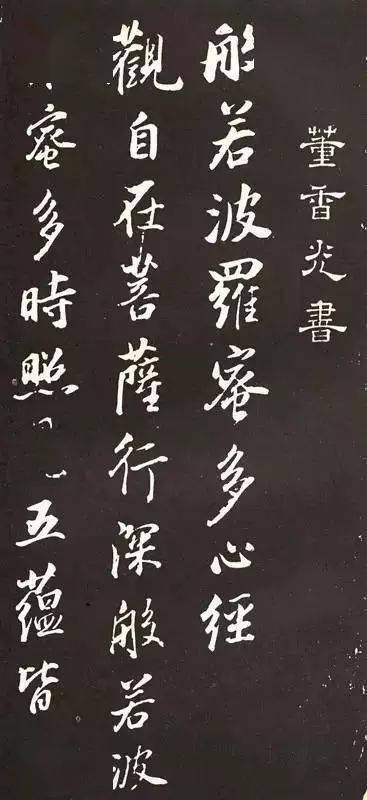 董香光書
般若波羅蜜多心經
觀自在菩薩行深般若波
蜜多時照五蘊皆